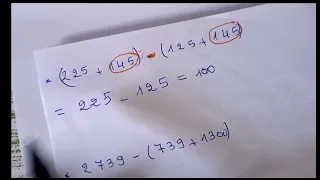 * (225 + 145) - (125 + 145)
= 225 - 125 = 100
* 2739 - (739 + 1300)